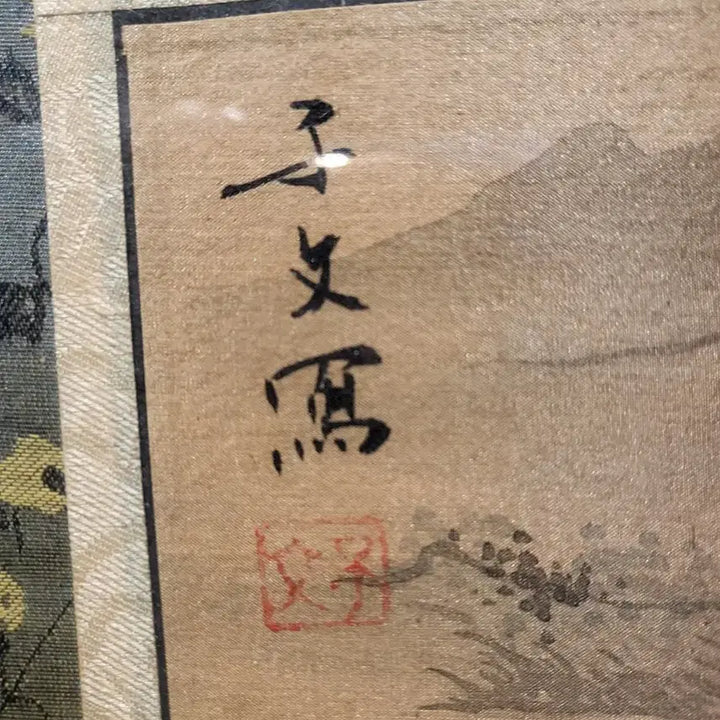 子文寫
子文